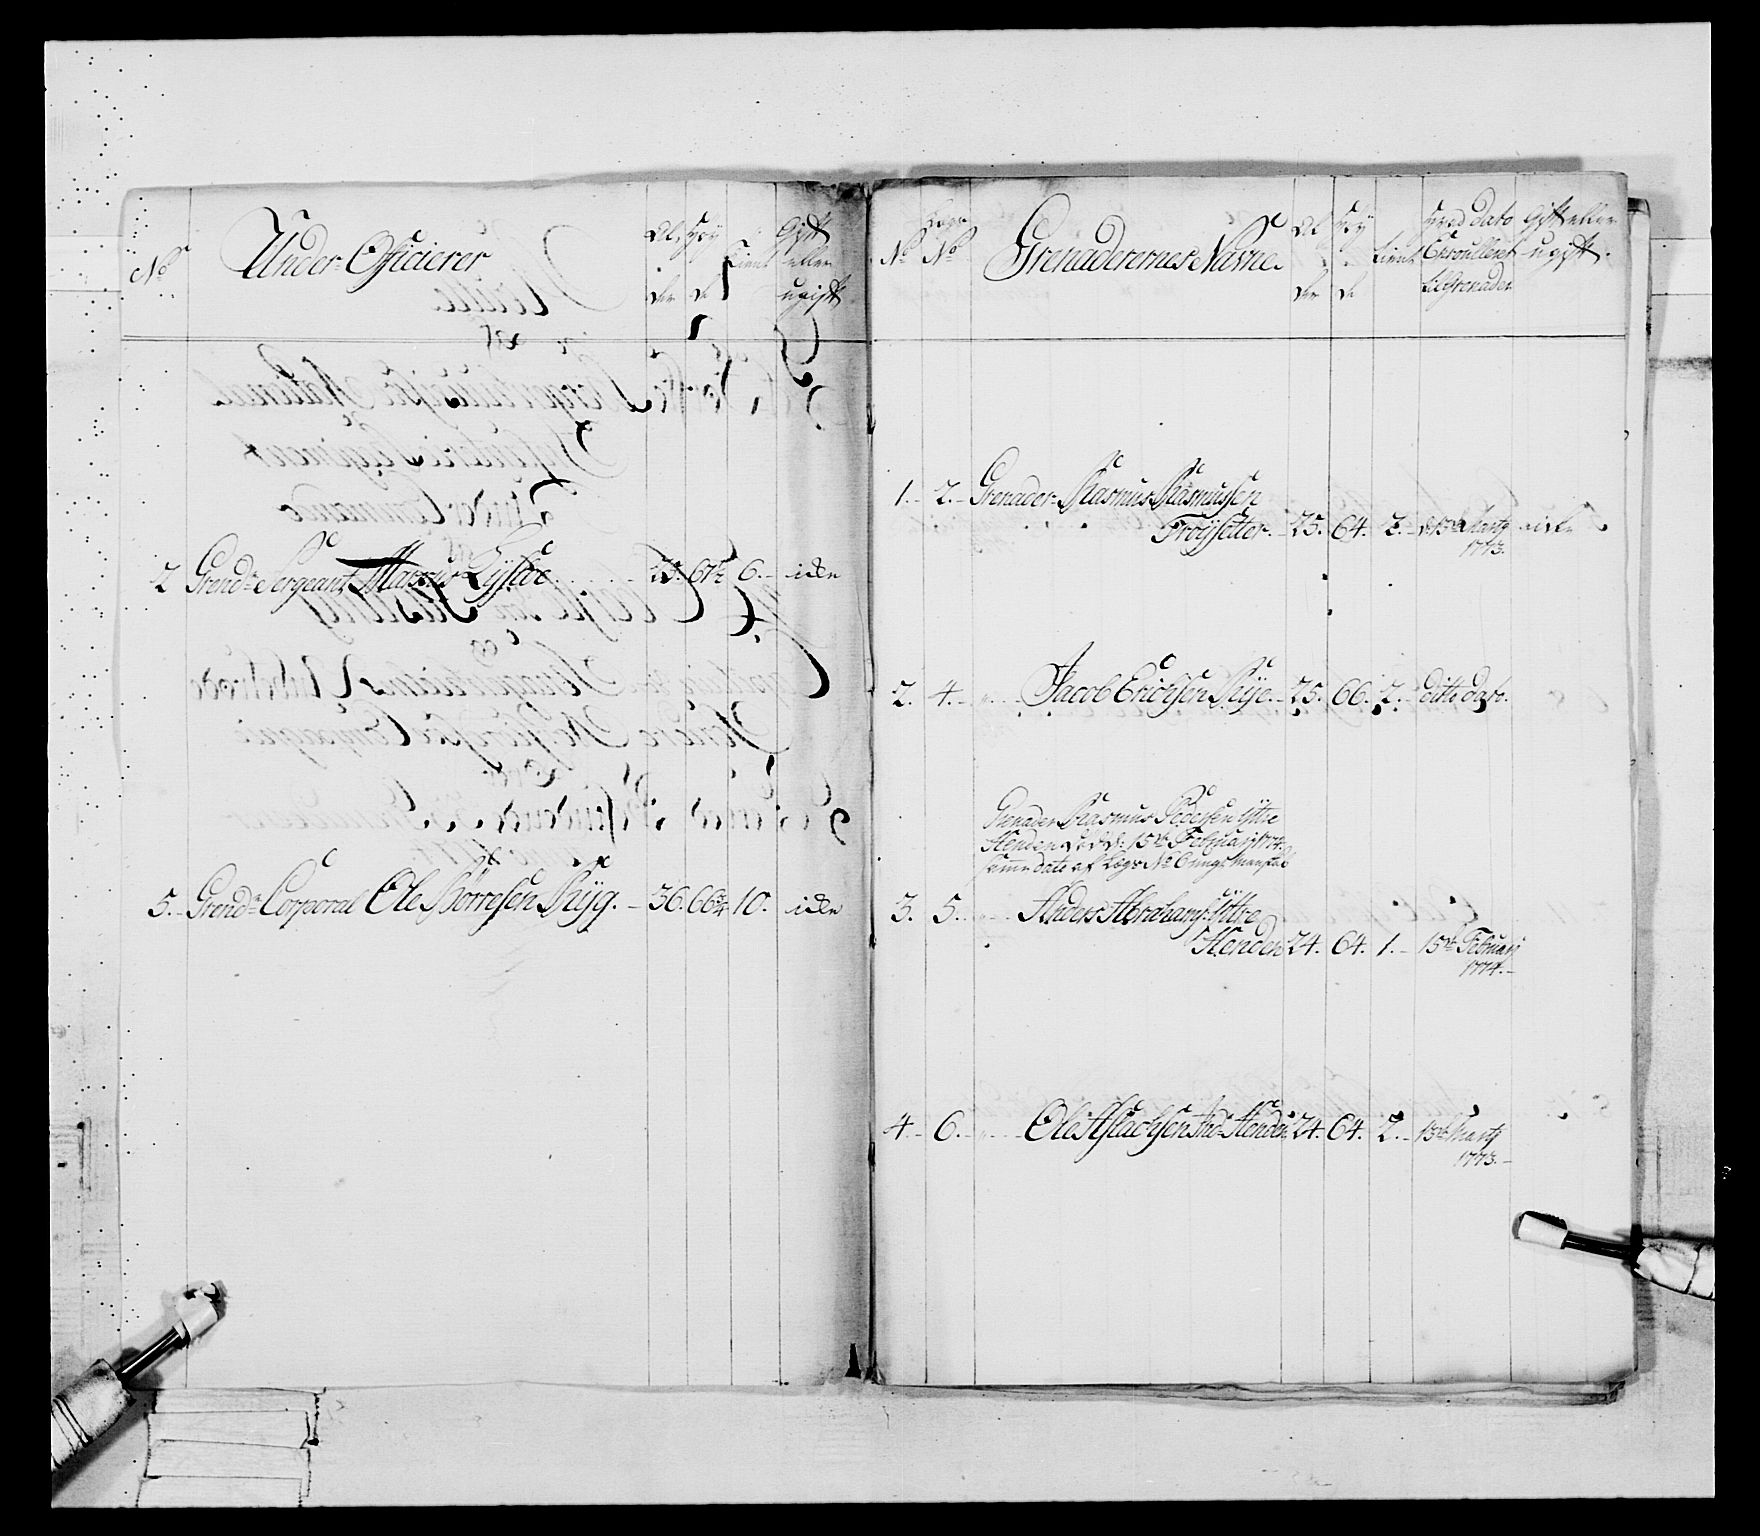 No
Under Officierer
Al,
der
Høy
de
Tient
Gift
eller
ugift
2 Grend: Sergeant Marcus Lystoe 25. 67½ 6. iden
5. Grend: Corporal Ole Børresen Ryg. 36. 66¾ 10. iden
No
Lægs
No
Grenaderernes Navne.
Al
der
Høy
de
Tient
hvad dato
Enroulleret
til Grenader
Gift eller
ugift.
1. 2. Grenader Rasmus Rasmussen
Frøysetter. 25. 64. 2. d: 15de Marty
1773.
2. 4. Jacob Erichsen Rye. 25. 66. 2. ditto dato.
Grenader Rasmus Pedersen Yttre
Henden d: 15de February 1774.
samme dato af Lægs No 6
3. 5. Anders Abrahams: Yttre
Henden 24. 64. 1. 15de February
1774.
4. 6. Ole Aslachsen Ind: Henden 24. 64. 2. 15de Marty
1773.